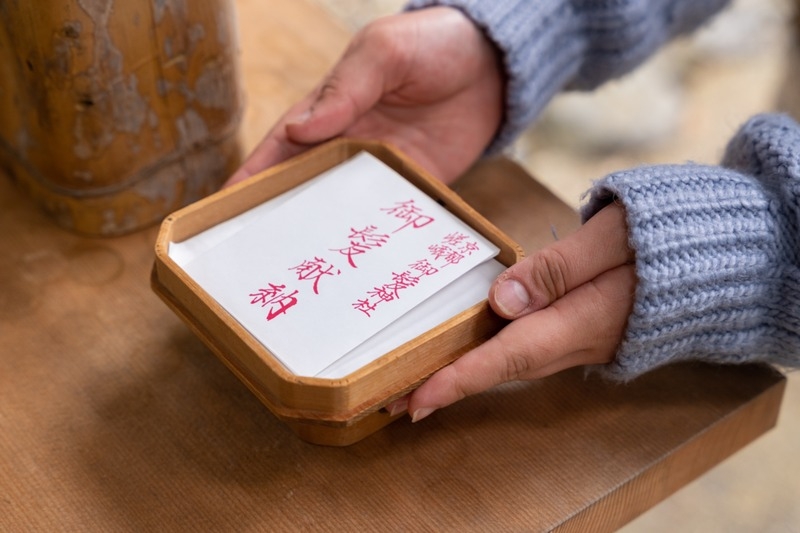 京都
嵯峨 御髪神社
御髪献納